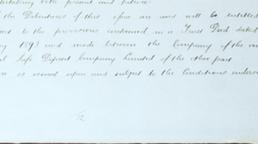 undertaking both present and future
The Debentures of this issue are and will be entitled
to the provisions contained in a Trust Deed dated
189 and made between the Company of the one
Life Deposit Company Limited of the other part
is issued upon and subject to the Conditions endorsed